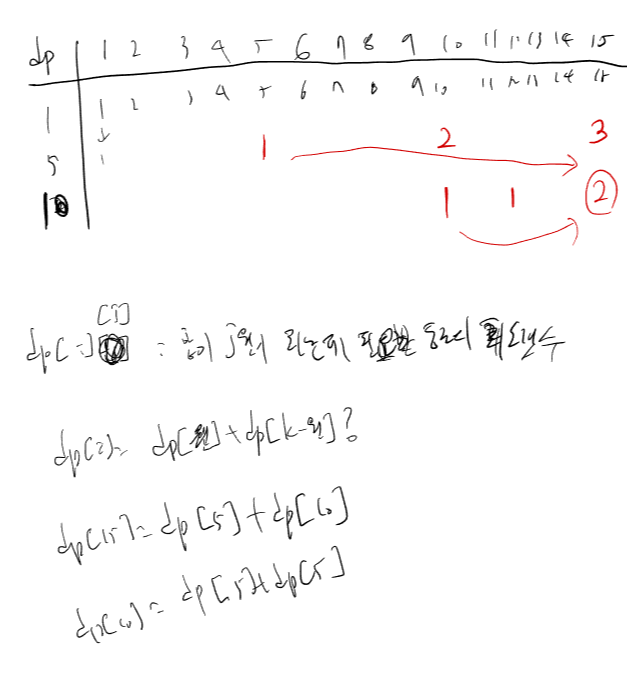 dp 1 2 3 4 5 6 7 8 9 10 11 12 13 14 15
1 1 2 3 4 5 6 7 8 9 10 11 12 13 14 15
5 1 1 2 3
10 1 1 2
[j]
dp[i] = 합이 j원이 되는데 필요한 동전의 최소갯수
dp[i]= dp[원]+dp[k-원]?
dp[15]= dp[5]+dp[10]
dp[10]= dp[5]+dp[5]